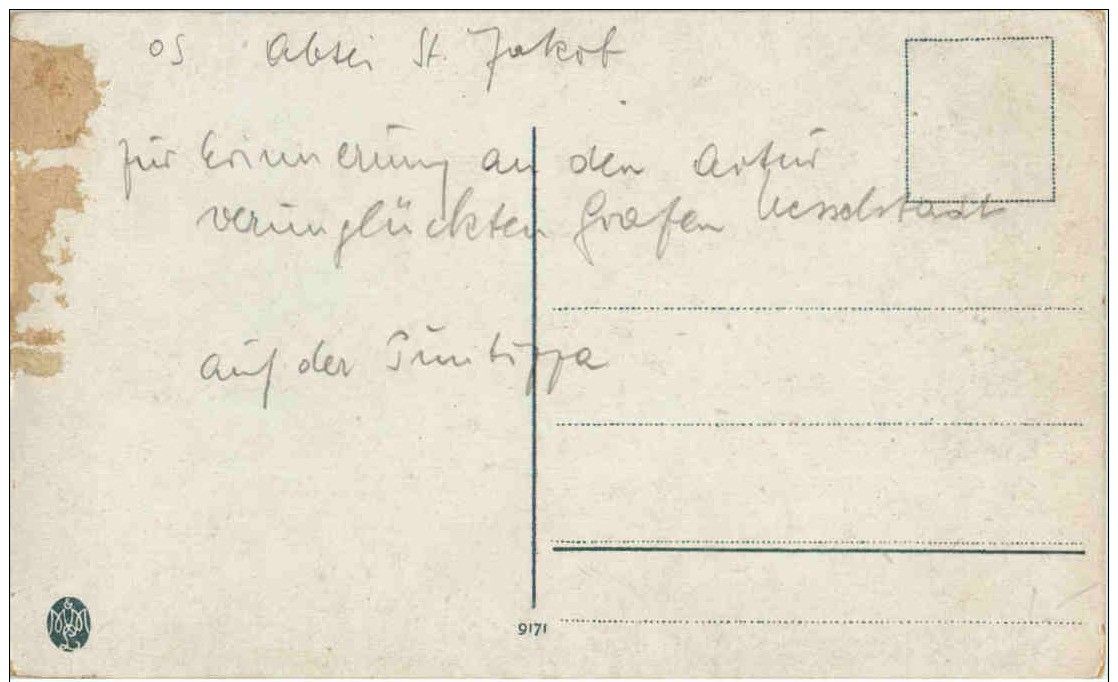 OS Absei St. Jakob
zur Erinnerung an den Artur
verunglückten Grafen Kesselstadt
auf der
9171